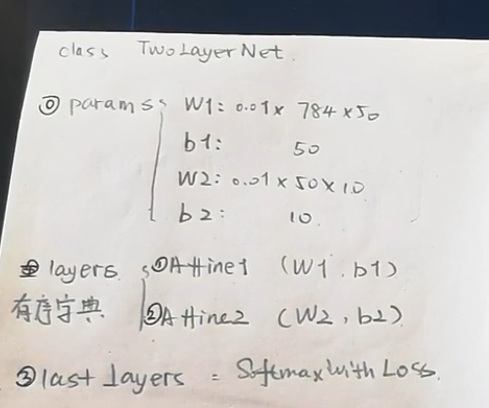 class TwoLayerNet.
⓪ params W1: 0.01 x 784 x 50
b1: 50
W2: 0.01 x 50 x 10
b2: 10.
layers ①Affine1 (W1, b1)
有序字典 ②Affine2 (W2, b2)
③last layers = SoftmaxWithLoss.